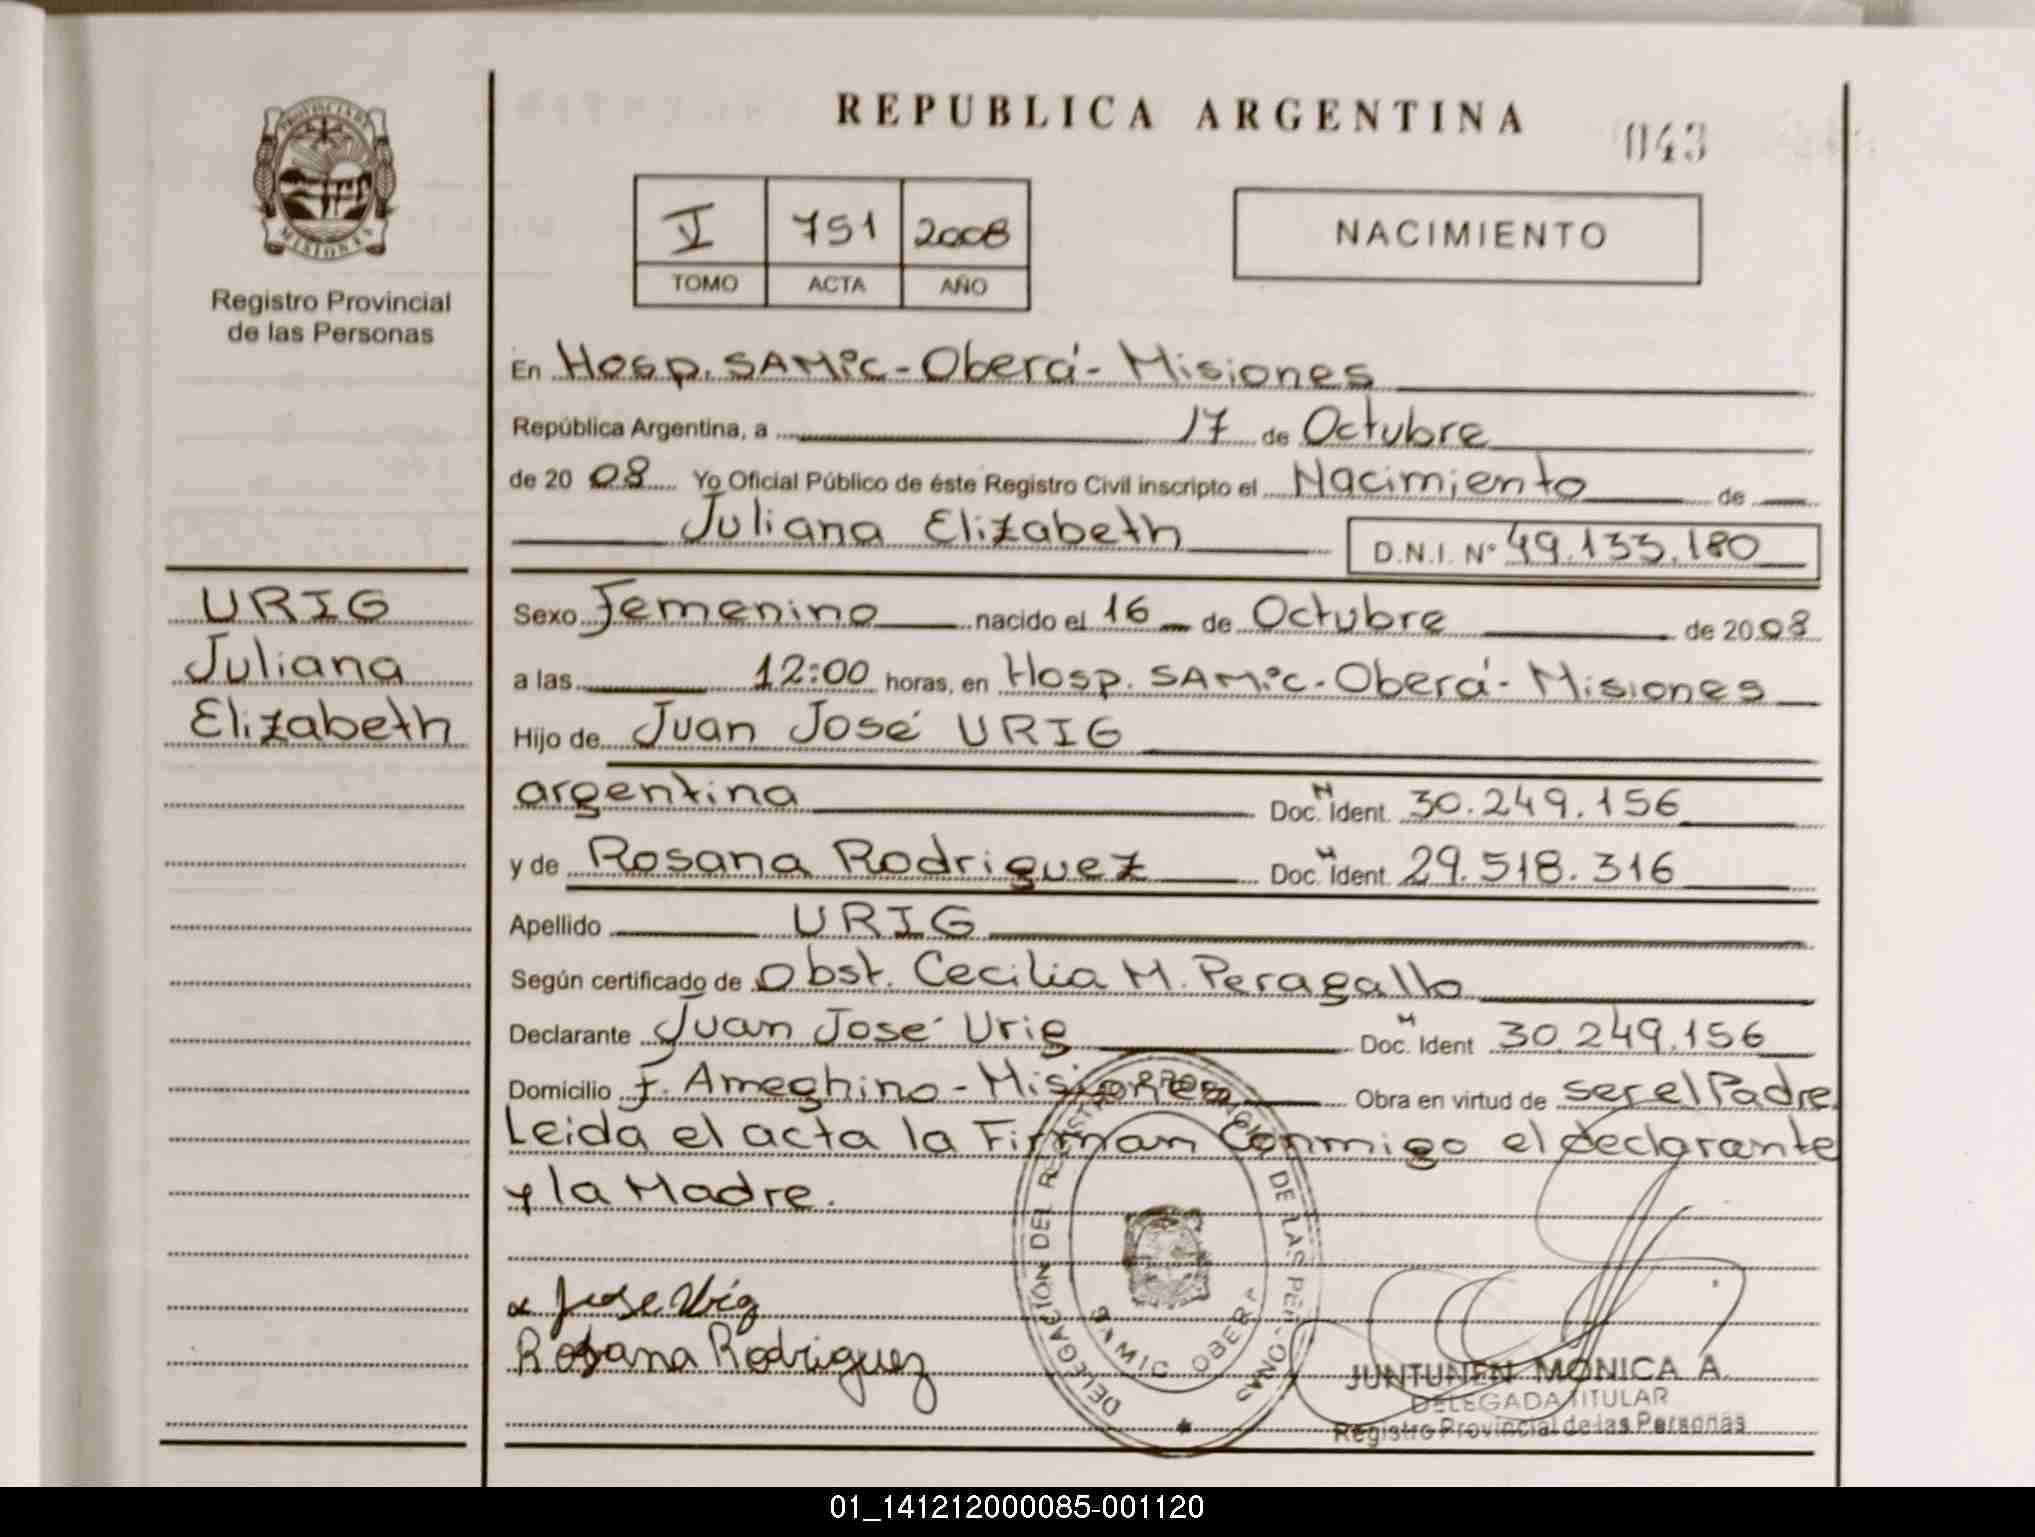 REPUBLICA ARGENTINA
043
PROVINCIA DE
MISIONES
Registro Provincial
de las Personas
V 751 2008
TOMO ACTA AÑO
NACIMIENTO
En Hosp. SAMIC - Oberá - Misiones
República Argentina, a 17 de Octubre
de 2008 Yo Oficial Público de éste Registro Civil inscripto el Nacimiento de
Juliana Elizabeth D.N.I. N° 49.133.180
URIG
Juliana
Elizabeth
Sexo Femenino nacido el 16 de Octubre de 2008
a las 12:00 horas, en Hosp. SAMIC - Oberá - Misiones
Hijo de Juan José URIG
argentina Doc. M Ident. 30.249.156
y de Rosana Rodriguez Doc. M Ident. 29.518.316
Apellido URIG
Según certificado de Obst. Cecilia M. Peragallo
Declarante Juan José Urig Doc. M Ident 30.249.156
Domicilio F. Ameghino - Misiones Obra en virtud de ser el Padre.
Leida el acta la Firman Conmigo el declarante
y la Madre.
x Jose Urig
Rosana Rodriguez
DELEGACIÓN DEL REGISTRO PROVINCIAL DE LAS PERSONAS
SAMIC OBERA
JUNTUNEN MONICA A.
DELEGADA TITULAR
Registro Provincial de las Personas
01_141212000085-001120